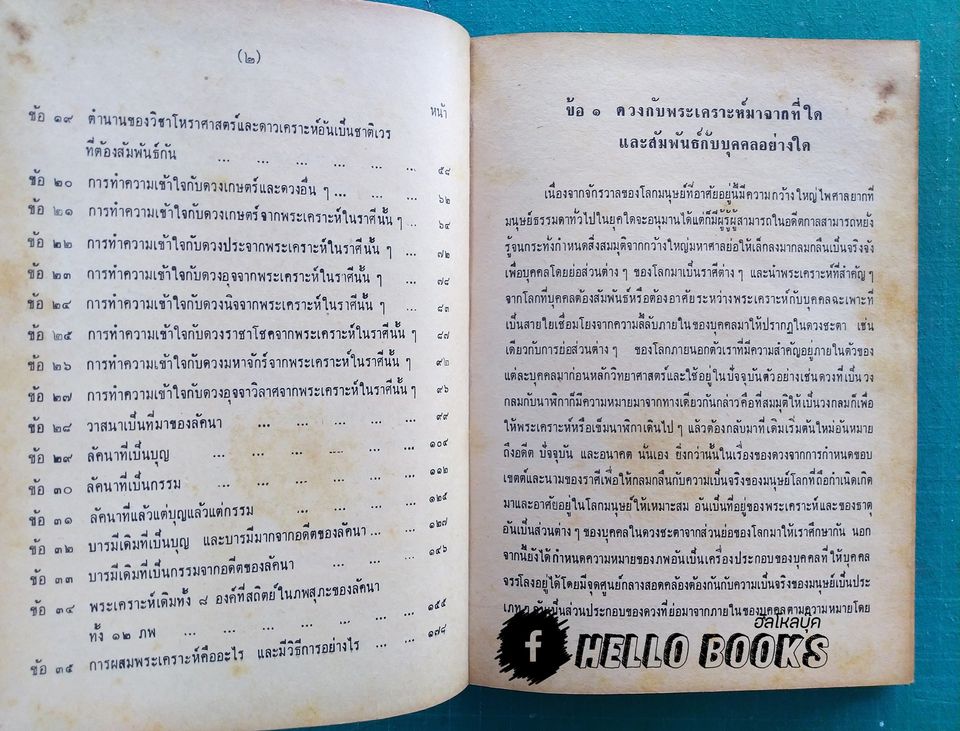 (๒)
หน้า
ข้อ ๑๙ ตำนานของวิชาโหราศาสตร์และดาวเคราะห์อันเป็นชาติเวร
ที่ต้องสัมพันธ์กัน ... ... ... ... ... ๕๘
ข้อ ๒๐ การทำความเข้าใจกับดวงเกษตร์และดวงอื่น ๆ ... ... ... ๖๒
ข้อ ๒๑ การทำความเข้าใจกับดวงเกษตร์จากพระเคราะห์ในราศีนั้น ๆ ... ๖๔
ข้อ ๒๒ การทำความเข้าใจกับดวงประจากพระเคราะห์ในราศีนั้น ๆ ... ๗๒
ข้อ ๒๓ การทำความเข้าใจกับดวงอุจจากพระเคราะห์ในราศีนั้น ๆ ... ๗๘
ข้อ ๒๔ การทำความเข้าใจกับดวงนิจจากพระเคราะห์ในราศีนั้น ๆ ... ๘๓
ข้อ ๒๕ การทำความเข้าใจกับดวงราชาโชคจากพระเคราะห์ในราศีนั้น ๆ ๘๗
ข้อ ๒๖ การทำความเข้าใจกับดวงมหาจักร์จากพระเคราะห์ในราศีนั้น ๆ ๙๒
ข้อ ๒๗ การทำความเข้าใจกับดวงอุจจาวิลาศจากพระเคราะห์ในราศีนั้น ๆ ๙๖
ข้อ ๒๘ วาสนาเป็นที่มาของลัคนา ... ... ... ... ๙๙
ข้อ ๒๙ ลัคนาที่เป็นบุญ ... ... ... ... ... ๑๐๔
ข้อ ๓๐ ลัคนาที่เป็นกรรม ... ... ... ... ... ๑๑๒
ข้อ ๓๑ ลัคนาที่แล้วแต่บุญแล้วแต่กรรม ... ... ... ... ๑๒๕
ข้อ ๓๒ บารมีเดิมที่เป็นบุญ และบารมีมากจากอดีตของลัคนา ... ... ๑๒๗
ข้อ ๓๓ บารมีเดิมที่เป็นกรรมจากอดีตของลัคนา ... ... ๑๔๖
ข้อ ๓๔ พระเคราะห์เดิมทั้ง ๘ องค์ที่สถิตย์ในภพสุภะของลัคนา
ทั้ง ๑๒ ภพ ... ... ... ... ... ... ๑๕๕
ข้อ ๓๕ การผสมพระเคราะห์คืออะไร และมีวิธีการอย่างไร ... ... ๑๗๘
ข้อ ๑ ดวงกับพระเคราะห์มาจากที่ใด
และสัมพันธ์กับบุคคลอย่างใด
เนื่องจากจักรวาลของโลกมนุษย์ที่อาศัยอยู่นี้มีความกว้างใหญ่ไพศาลยากที่
มนุษย์ธรรมดาทั่วไปในยุคใดจะอนุมานได้แต่ก็มีผู้รู้ผู้สามารถในอดีตกาลสามารถหยั่ง
รู้จนกระทั่งกำหนดสิ่งสมมุติจากกว้างใหญ่มหาศาลย่อให้เล็กลงมากลมกลืนเป็นจริงจัง
เพื่อบุคคลโดยย่อส่วนต่าง ๆ ของโลกมาเป็นราศีต่าง ๆ และนำพระเคราะห์ที่สำคัญ ๆ
จากโลกที่บุคคลต้องสัมพันธ์หรือต้องอาศัย ระหว่างพระเคราะห์กับบุคคลฉะเพาะที่
เป็นสายใยเชื่อมโยงจากความลี้ลับภายในของบุคคลมาให้ปรากฏในดวงชะตา เช่น
เดียวกับการย่อส่วนต่าง ๆ ของโลกภายนอกตัวเราที่มีความสำคัญอยู่ภายในตัวของ
แต่ละบุคคลมาก่อนหลักวิทยาศาสตร์และใช้อยู่ในปัจจุบันตัวอย่างเช่นดวงที่เป็นวง
กลมกับนาฬิกาก็มีความหมายมาจากทางเดียวกันกล่าวคือที่สมมุติให้เป็นวงกลมก็เพื่อ
ให้พระเคราะห์หรือเข็มนาฬิกาเดินไป ๆ แล้วต้องกลับมาที่เดิมเริ่มต้นใหม่อันหมาย
ถึงอดีต ปัจจุบัน และอนาคต นั่นเอง ยิ่งกว่านั้นในเรื่องของดวงจากการกำหนดขอบ
เขตต์และนามของราศีเพื่อให้กลมกลืนกับความเป็นจริงของมนุษย์โลกที่ถือกำเนิดเกิด
มาและอาศัยอยู่ในโลกมนุษย์ให้เหมาะสม อันเป็นที่อยู่ของพระเคราะห์และของธาตุ
อันเป็นส่วนต่าง ๆ ของบุคคลในดวงชะตาจากส่วนย่อของโลกมาให้เราศึกษากัน นอก
จากนี้ยังได้กำหนดความหมายของภพอันเป็นเครื่องประกอบของบุคคลที่ให้บุคคล
จรรโลงอยู่ได้โดยมีจุดศูนย์กลางสอดคล้องต้องกันกับความเป็นจริงของมนุษย์เป็นประ
เภท ๆ อันเป็นส่วนประกอบของดวงที่ย่อมาจากภายในของบุคคลตามความหมายโดย
ฮัลโหลบุ๊ค
f HELLO BOOKS